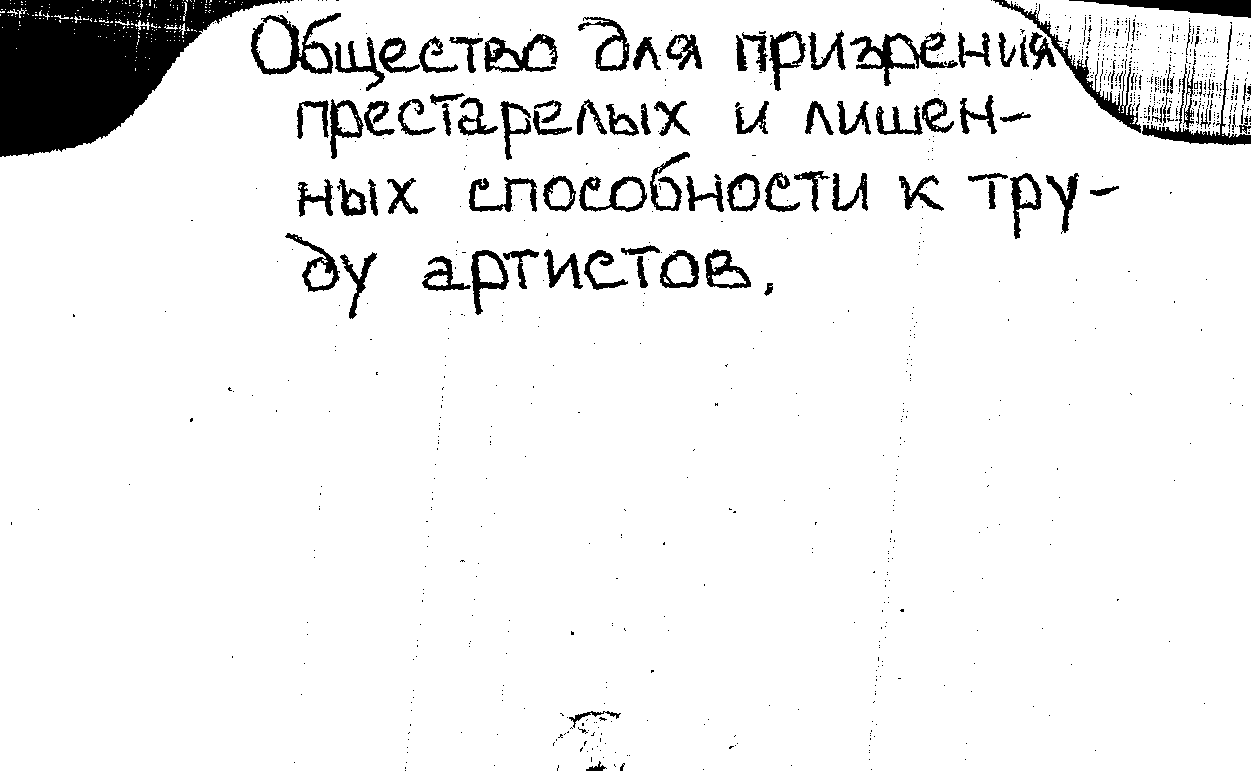 Общество для призрения
престарелых и лишен-
ных способности к тру-
ду артистов.